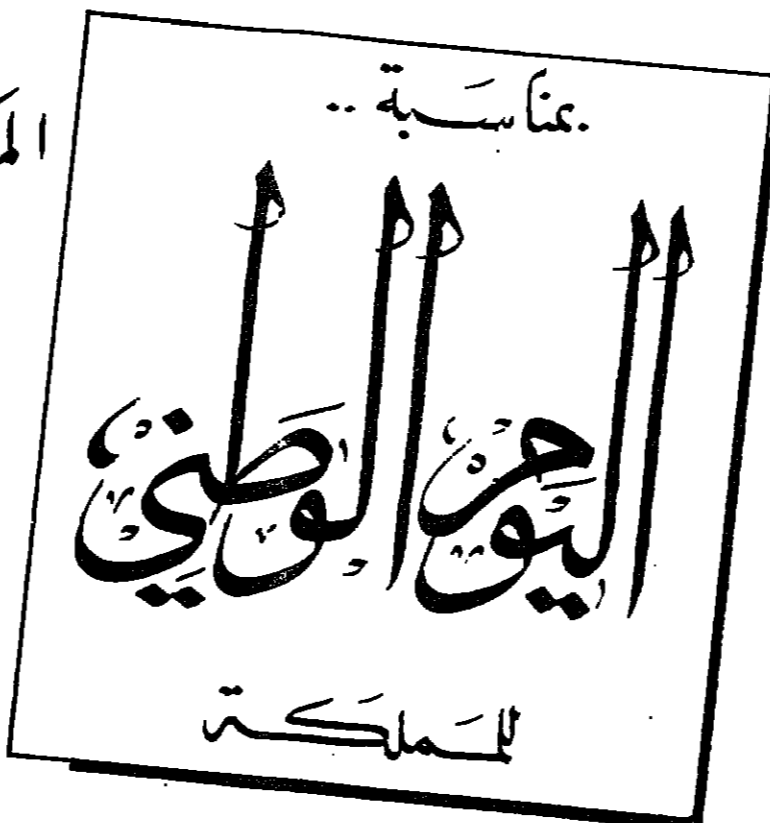 بمناسبة ..
اليوم الوطني
للمملكة